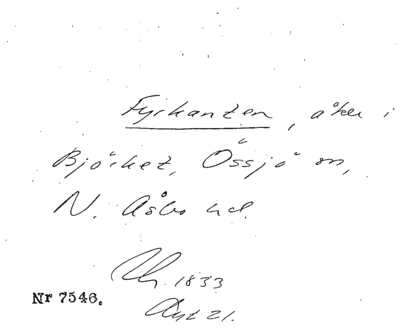 Fyrkanten, åker i
Björket, Össjö sn,
N. Åsbo hd.
1833
Nr 7546.
21.